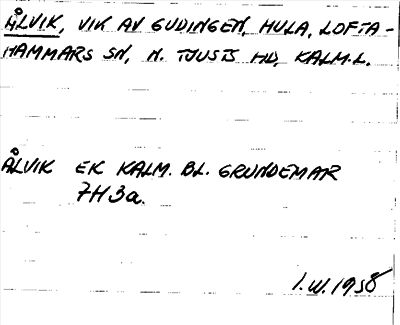 ÅLVIK, VIK AV GUDINGEN, HULA, LOFTA-
HAMMARS SN, N. TJUSTS HD, KALM.L.
ÅLVIK EK KALM. BL. GRUNDEMAR
7H3a.
1958